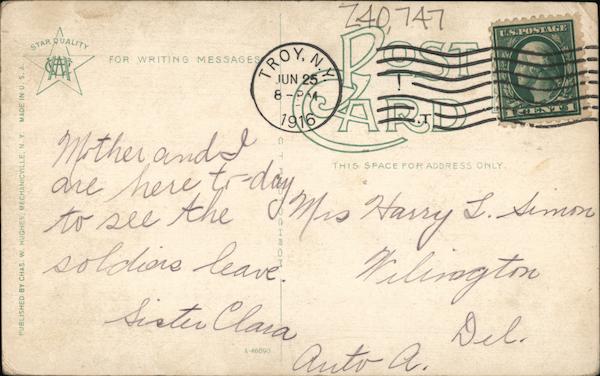 Z40,747
STAR QUALITY
FOR WRITING MESSAGES
POST CARD
TROY, N.Y.
JUN 25
8-PM
1916
U.S. POSTAGE
1 CENT 1
THIS SPACE FOR ADDRESS ONLY.
PUBLISHED BY CHAS. W. HUGHES, MECHANICVILLE, N. Y. MADE IN U. S. A.
Mother and I
are here to-day
to see the
soldiers leave.
Sister Clara
Mrs Harry L. Simon
Wilmington
Del.
Auto A.
A-46090